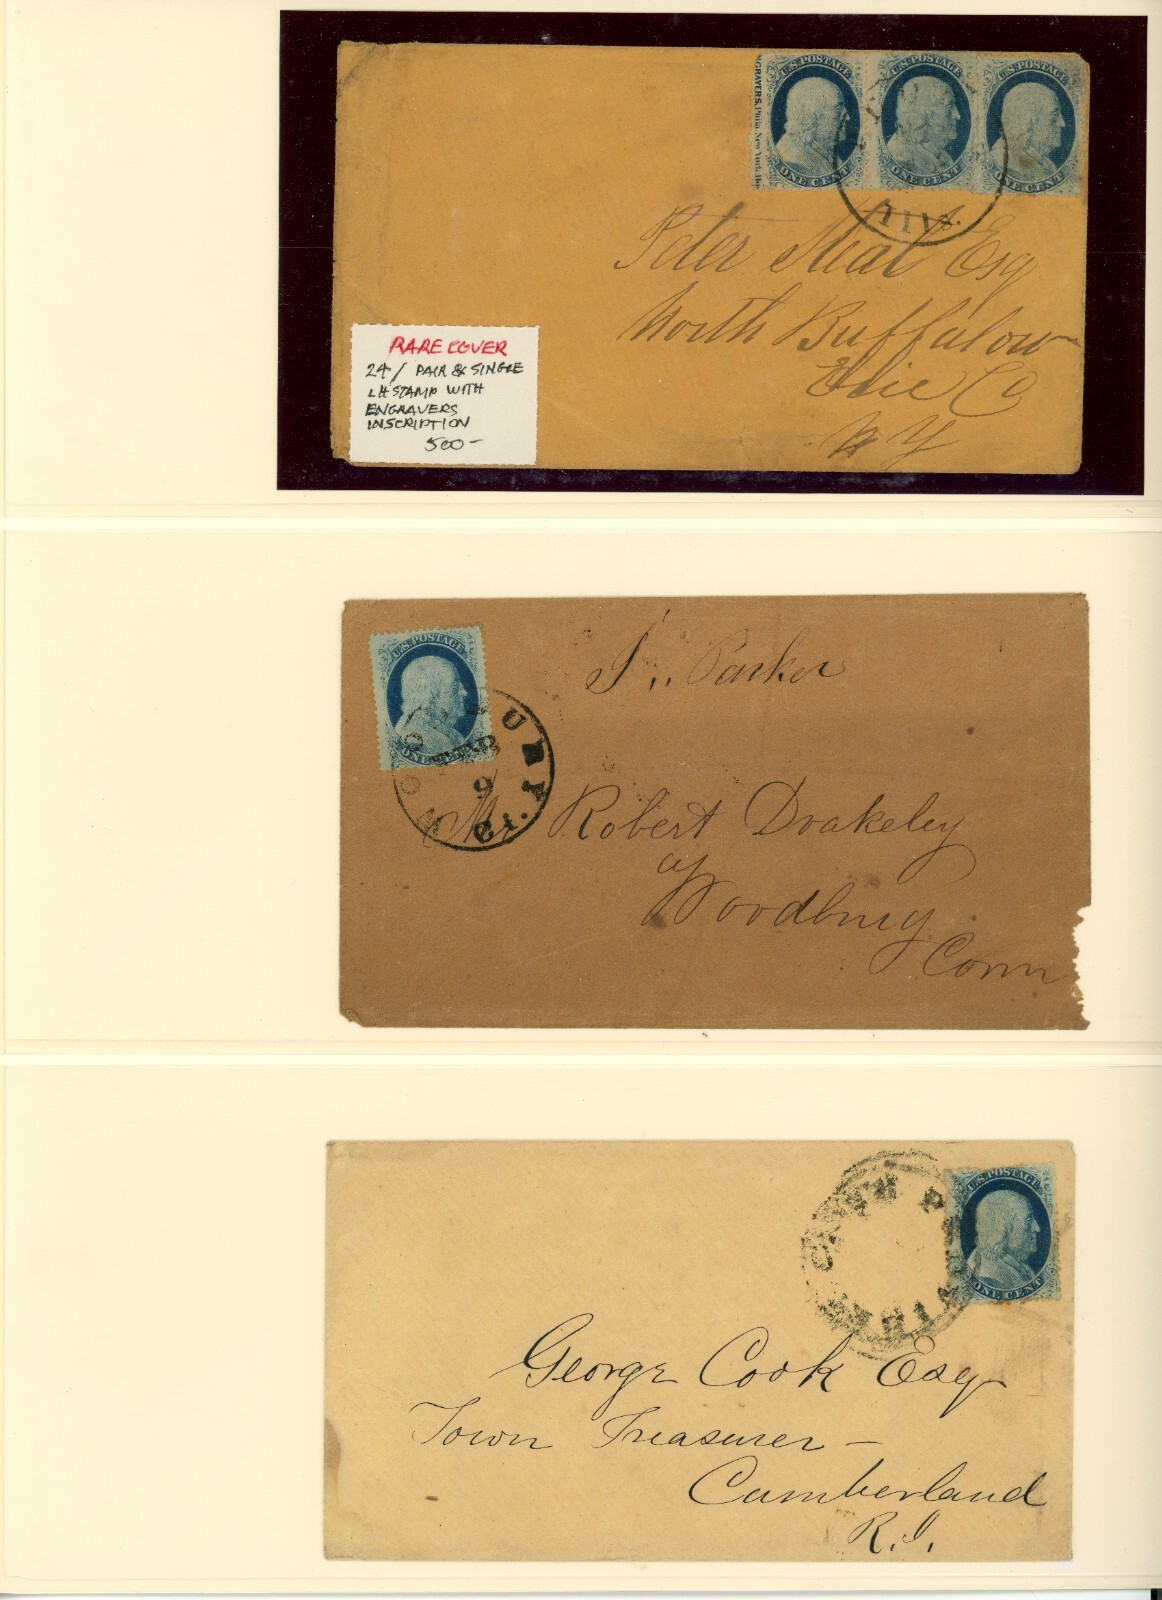 GRAVERS, Phila. New York,
U.S. POSTAGE
ONE CENT
U.S. POSTAGE
ONE CENT
U.S. POSTAGE
ONE CENT
Peter Esq
North Buffalow
Erie Co
N Y
RARE COVER
24 / PAIR & SINGLE
LH STAMP WITH
ENGRAVERS
INSCRIPTION
500-
U.S. POSTAGE
ONE CENT
WOODBURY Ct.
FEB
9
Parker
Mr Robert Drakeley
of Woodbury
Conn
U.S. POSTAGE
ONE CENT
George Cook Esq
Town Treasurer –
Cumberland
R.I.